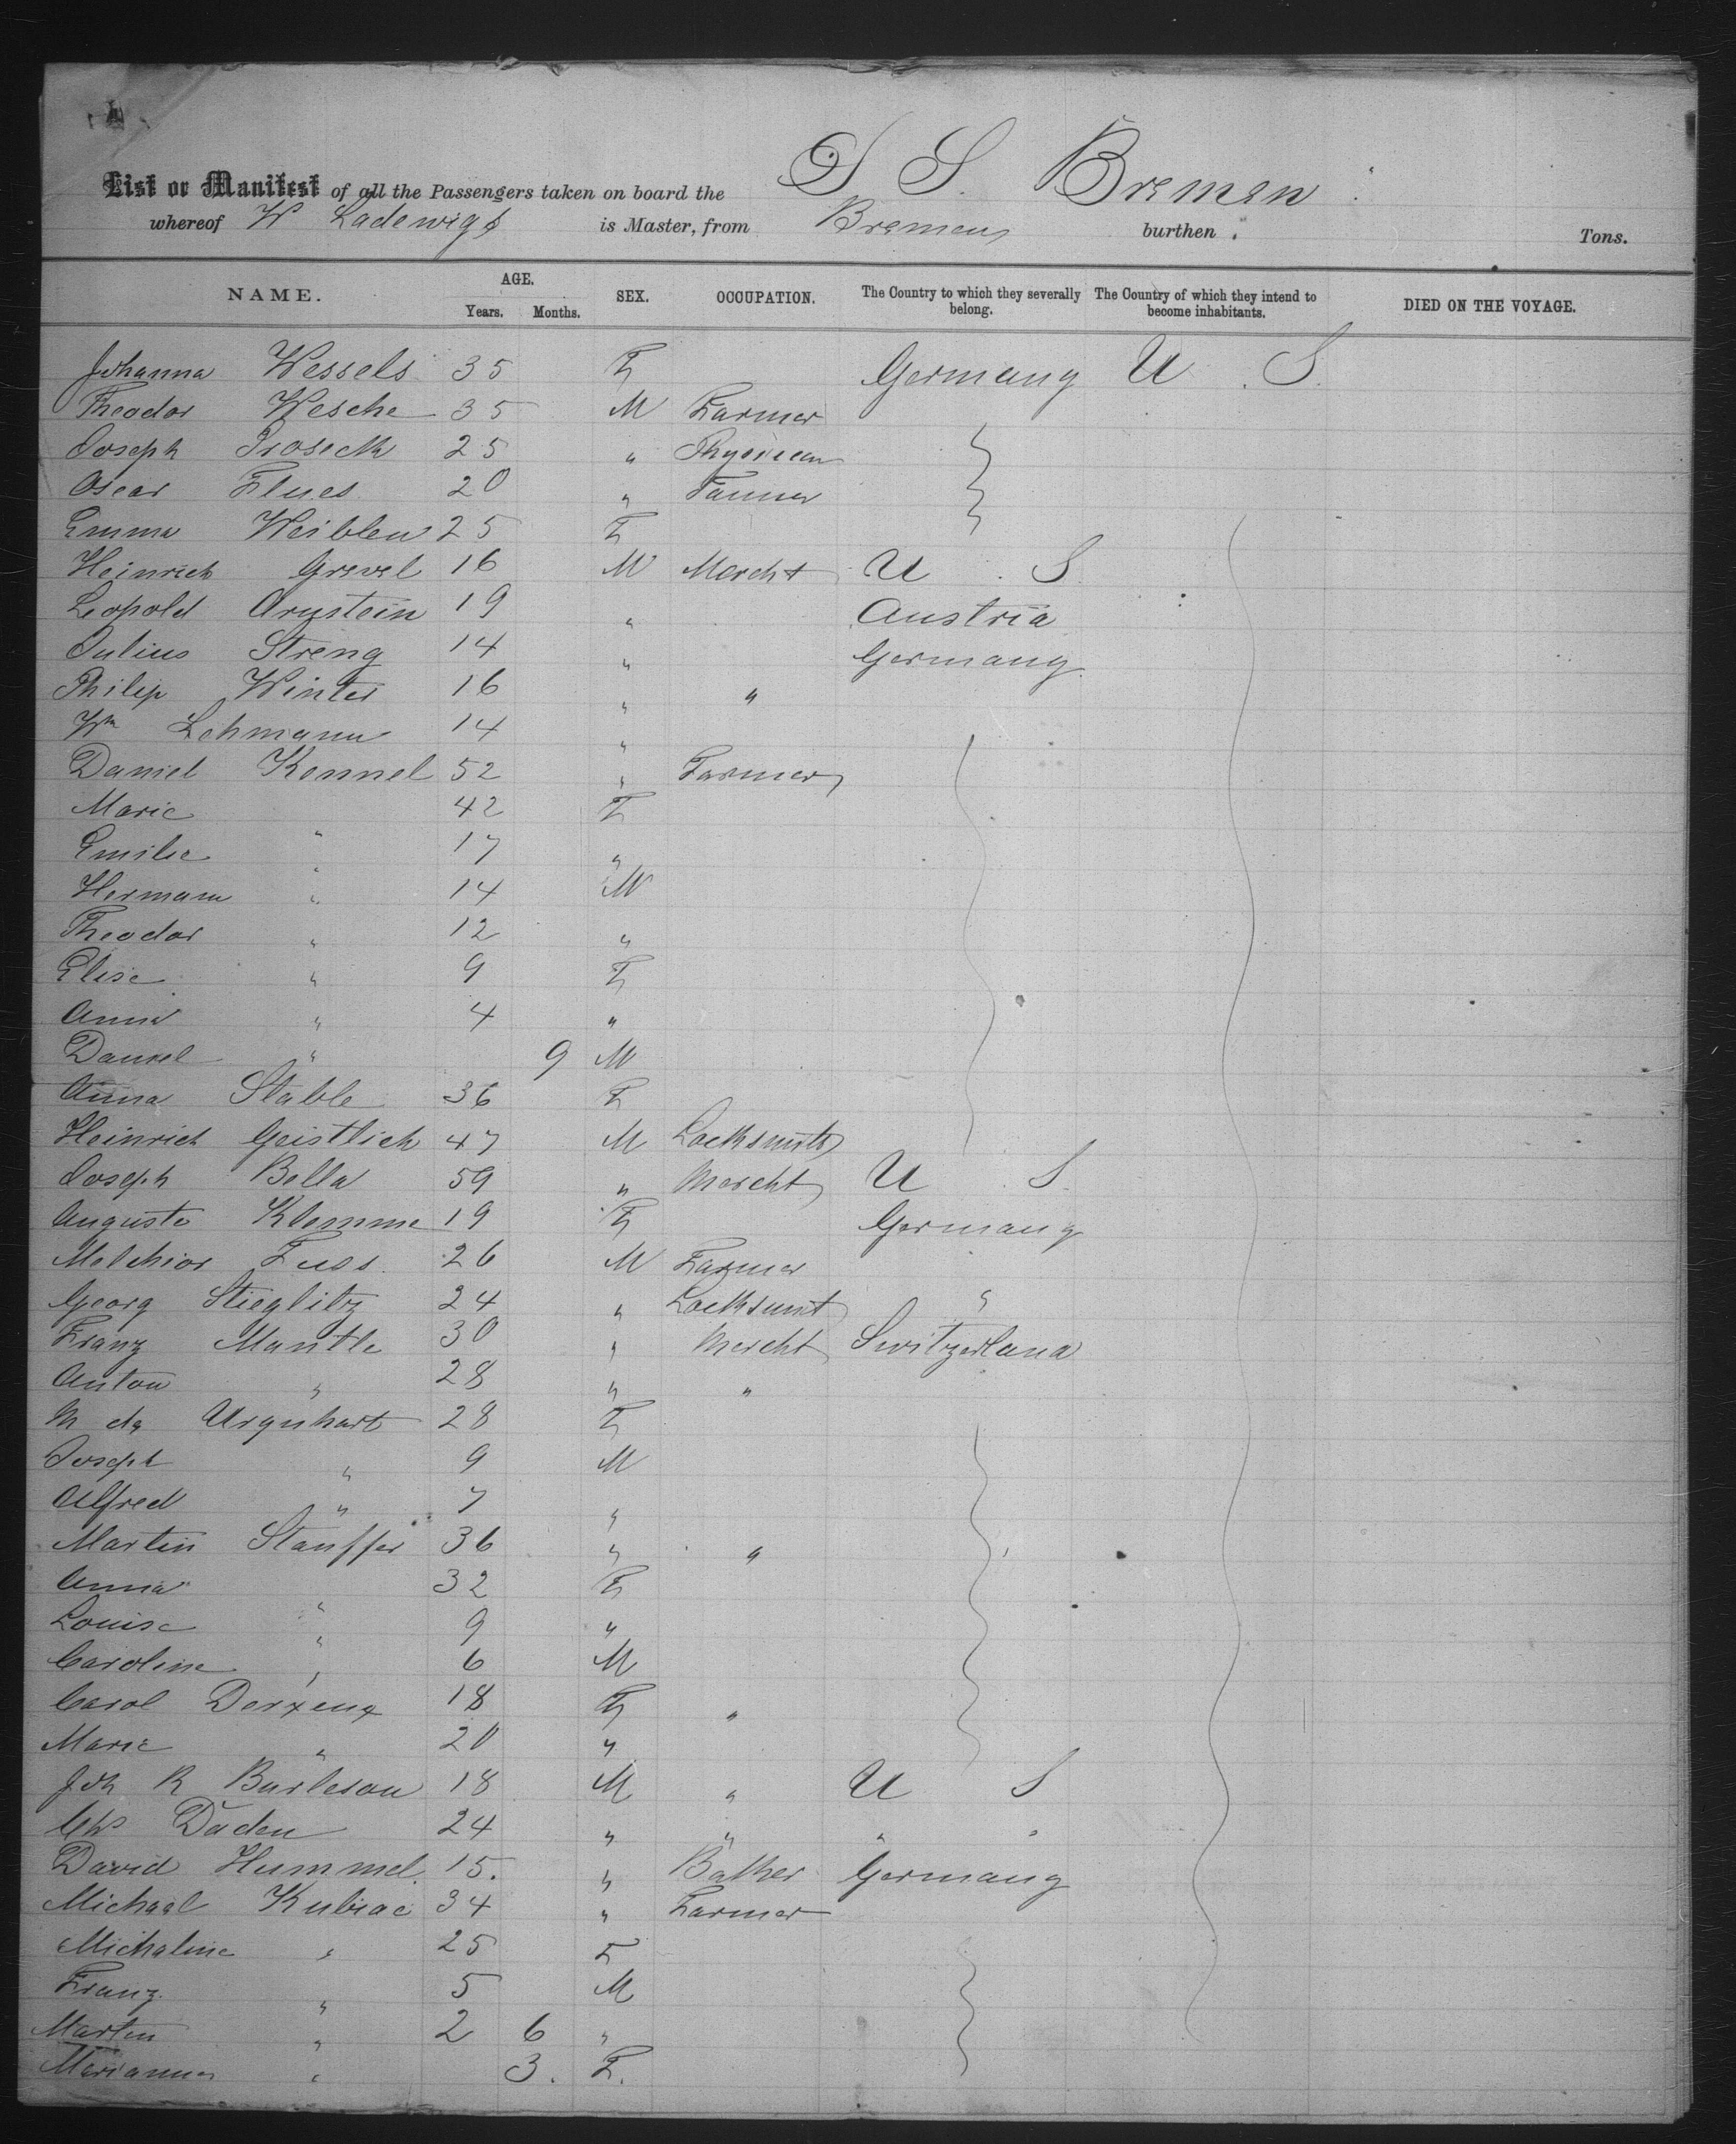 List or Manifest of all the Passengers taken on board the S S. Bremen
whereof W Ladewigs is Master, from Bremen burthen Tons.
NAME. AGE. Years. Months. SEX. OCCUPATION. The Country to which they severally belong. The Country of which they intend to become inhabitants. DIED ON THE VOYAGE.
Johanna Wessels 35 F Germany U. S.
Theodor Wesche 35 M Farmer
Joseph Proseck 25 " Physician
Oscar Flues 20 " Tanner
Emma Weiblen 25 F
Heinrich Grevel 16 M Mercht U. S.
Leopold Arnstein 19 " Austria
Julius Streng 14 " Germany
Philip Winter 16 " "
Wm Lehmann 14 "
Daniel Kennel 52 " Farmer
Marie 42 F
Emilie " 17 "
Hermann " 14 M
Theodor " 12 "
Elise " 9 F
Anna " 4 "
Daniel " 9 M
Anna Stable 36 F
Heinrich Geistlich 47 M Locksmith
Joseph Bella 59 " Mercht U S.
Auguste Klemme 19 F Germany
Melchior Fuss 26 M Farmer
Georg Stieglitz 24 " Locksmit "
Franz Mantle 30 " Mercht Switzerland
Anton " 28 " "
M de Urquhart 28 F
Joseph " 9 M
Alfred " 7 "
Martin Stauffer 36 " "
Anna 32 F
Louise " 9 "
Caroline " 6 M
Carol 18 F "
Marie " 20 "
Joh R Burleson 18 M " U S
Chs Daden 24 " " " "
David Hummel. 15. " Bather Germany
Michael Kubiac 34 " Farmer
Michaline " 25 F
Franz " 5 M
Martin " 2 6 "
Marianna " 3. F.